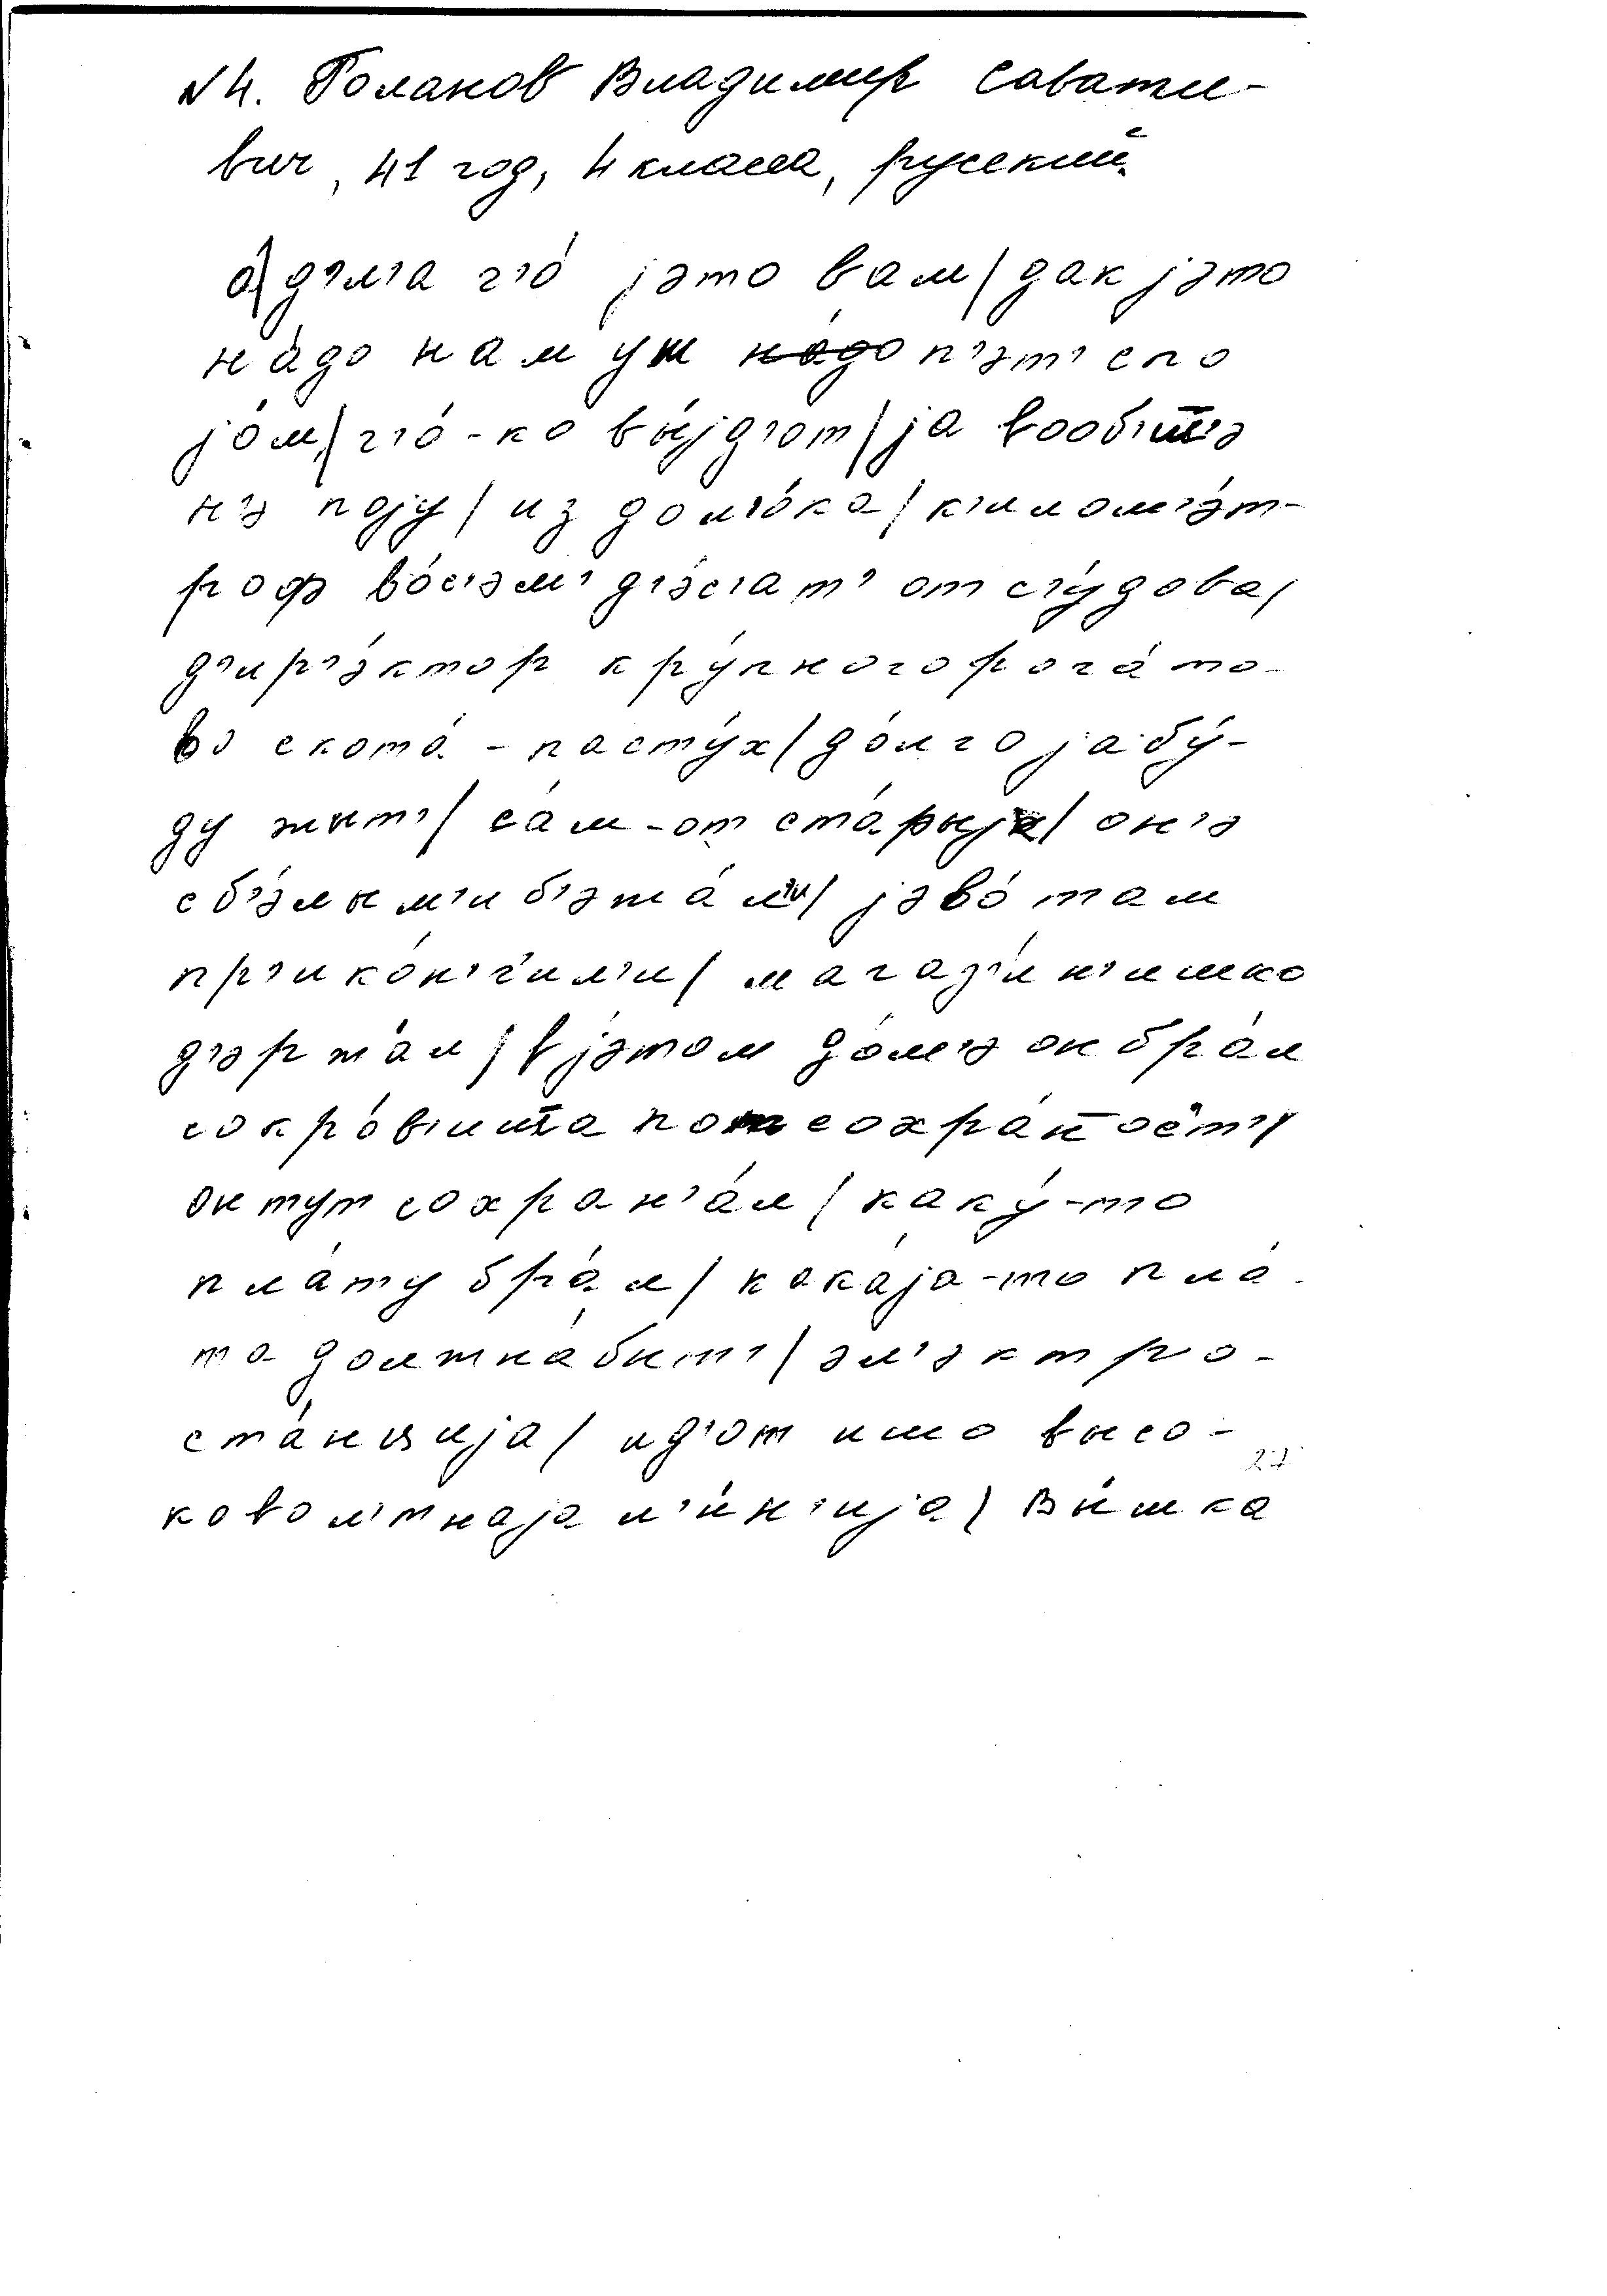 N4. Голанов Владимир Савати-
вич, 41 год, 4 класса, русский.
о́/ дл'а ч'о́ jэто вам/ дак jэто
на́до нам уж на́до п'эт' спо
jо́м/ ч'о́-ко вы́jд'от/ jа вообш̅'э
н'э поjу/ из дал'о́ка/ к'илом'э́т-
роф во́с'эм'д'эс'ат' от с'у́дова/
д'ир'э́ктор кру́пного рога́то-
во скота́ - пасту́х/ до́лго jа бу́-
ду жыт'/ са́м-от ста́рыj/ он'э
с б'э́лым'и б'эжа́л'и/ jэво́ там
пр'ико́н'ч'ил'и/ магаз'и́н'ишко
д'эржа́л/ в jэтом до́м'э он бра́л
сокро́в'иш̅'а пот сохра́н̅ост'/
он тут сохран'а́л/ каку́-то
пла́ту бра́л/ кака́jа-то пла́-
та должна́ быт'/ эл'эктро-
ста́нцыjа/ ид'о́т ишо высо-
ково́л'тнаjа л'и́н'иjа/ вы́шка
27